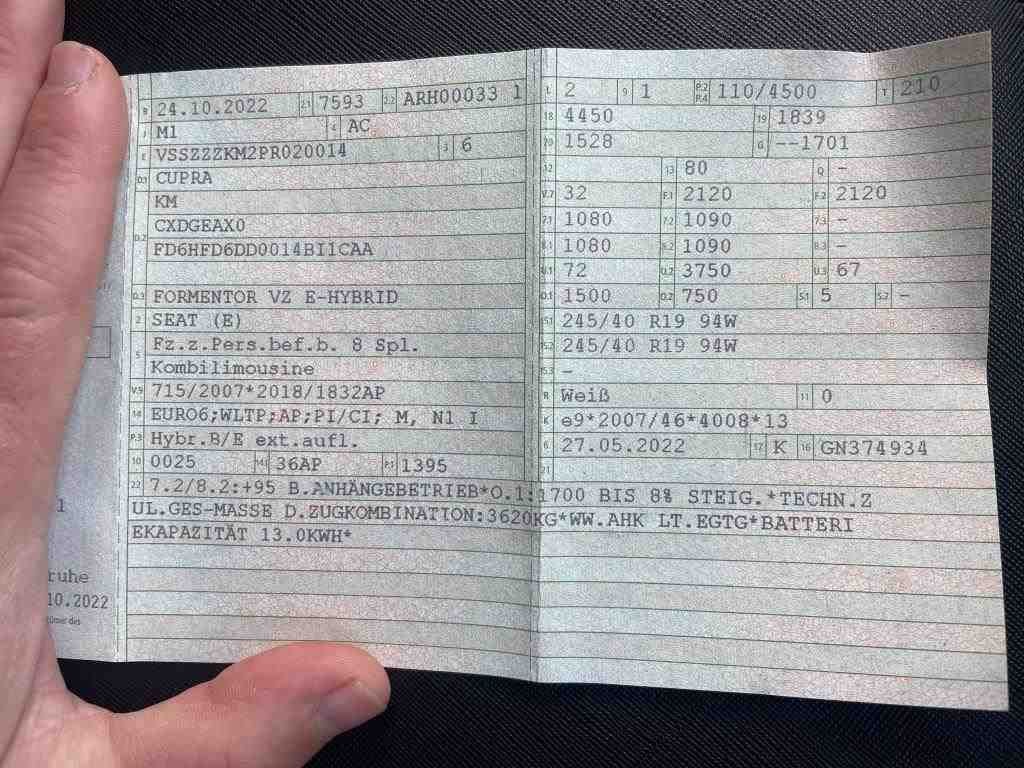 B 24.10.2022 2.1 7593 2.2 ARH00033 1
J M1 4 AC
E VSSZZZKM2PR020014 3 6
D.1 CUPRA
KM
CXDGEAX0
D.2
FD6HFD6DD0014BI1CAA
D.3 FORMENTOR VZ E-HYBRID
2 SEAT (E)
5 Fz.z.Pers.bef.b. 8 Spl.
Kombilimousine
V.9 715/2007*2018/1832AP
14 EURO6;WLTP;AP;PI/CI; M, N1 I
P.3 Hybr.B/E ext.aufl.
10 0025 14.1 36AP P.1 1395
L 2 9 1 P.2 P.4 110/4500 T 210
18 4450 19 1839
20 1528 G --1701
12 13 80 Q -
V.7 32 F.1 2120 F.2 2120
7.1 1080 7.2 1090 7.3 -
8.1 1080 8.2 1090 8.3 -
U.1 72 U.2 3750 U.3 67
O.1 1500 O.2 750 S.1 5 S.2 -
15.1 245/40 R19 94W
15.2 245/40 R19 94W
15.3 -
R Weiß 11 0
K e9*2007/46*4008*13
6 27.05.2022 17 K 16 GN374934
21
22 7.2/8.2:+95 B.ANHÄNGEBETRIEB*O.1:1700 BIS 8% STEIG.*TECHN.Z
UL.GES-MASSE D.ZUGKOMBINATION:3620KG*WW.AHK LT.EGTG*BATTERI
EKAPAZITÄT 13.0KWH*
ruhe
10.2022